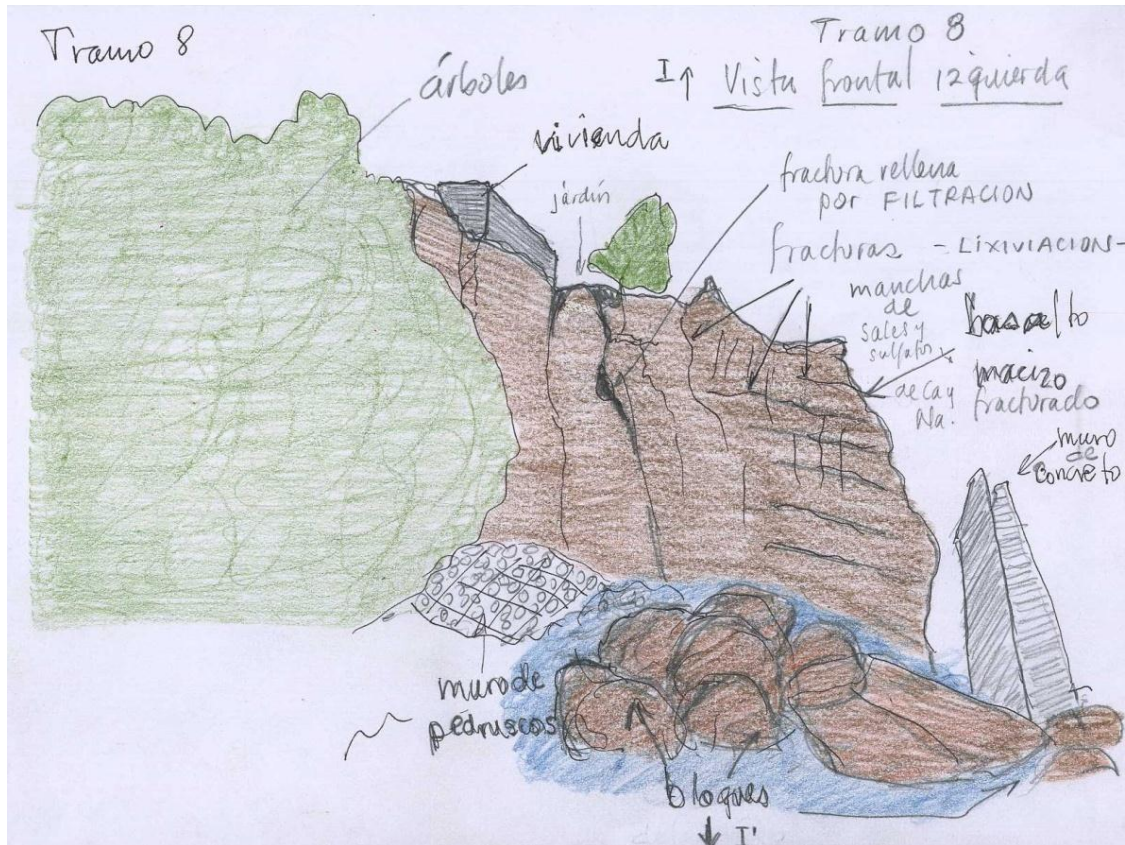 Tramo 8
Tramo 8
I↑ Vista frontal izquierda
árboles
vivienda
járdín
fractura rellena
por FILTRACION
fracturas - LIXIVIACION -
manchas
de
sales y
sulfatos
de Ca y
Na.
basalto
macizo
fracturado
muro
de
concreto
muro de
pedruscos
bloques
↓ I'